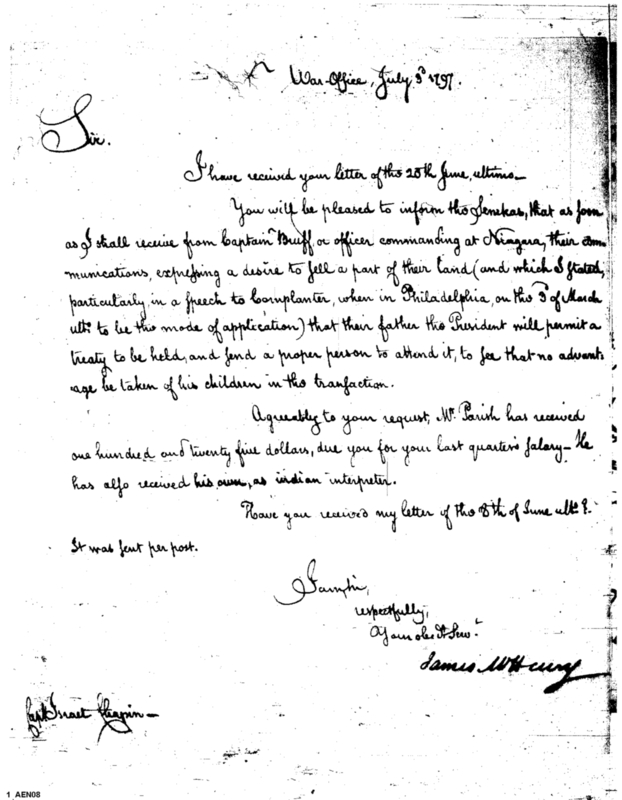 War-Office, July 3d 1797.
Sir.
I have received your letter of the 20th June, ultimo—
You will be pleased to inform the Senekas, that as soon
as I shall receive from Captain Bruff, or officer commanding at Niagara, their com-
munications, expressing a desire to sell a part of their land (and which I stated,
particularly, in a speech to Cornplanter, when in Philadelphia, on the 3d of March
ulto. to be the mode of application) that their father the President will permit a
treaty to be held, and send a proper person to attend it, to see that no advant-
age be taken of his children in the transaction.
Agreeably to your request, Mr. Parish has received
one hundred and twenty five dollars, due you for your last quarter's salary— He
has also received his own, as indian interpreter.
Have you received my letter of the 8th of June ulto.?
It was sent per post.
I am sir,
respectfully,
Your obed St Servt.
James McHenry
Capt. Israel Chapin—
1_AEN08